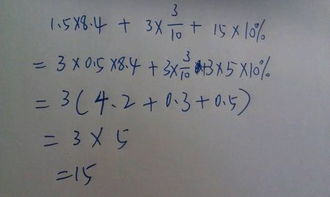 1.5×8.4 + 3×3/10 + 15×10%
= 3×0.5×8.4 + 3×3/10 + 3×5×10%
= 3(4.2+0.3+0.5)
= 3×5
=15